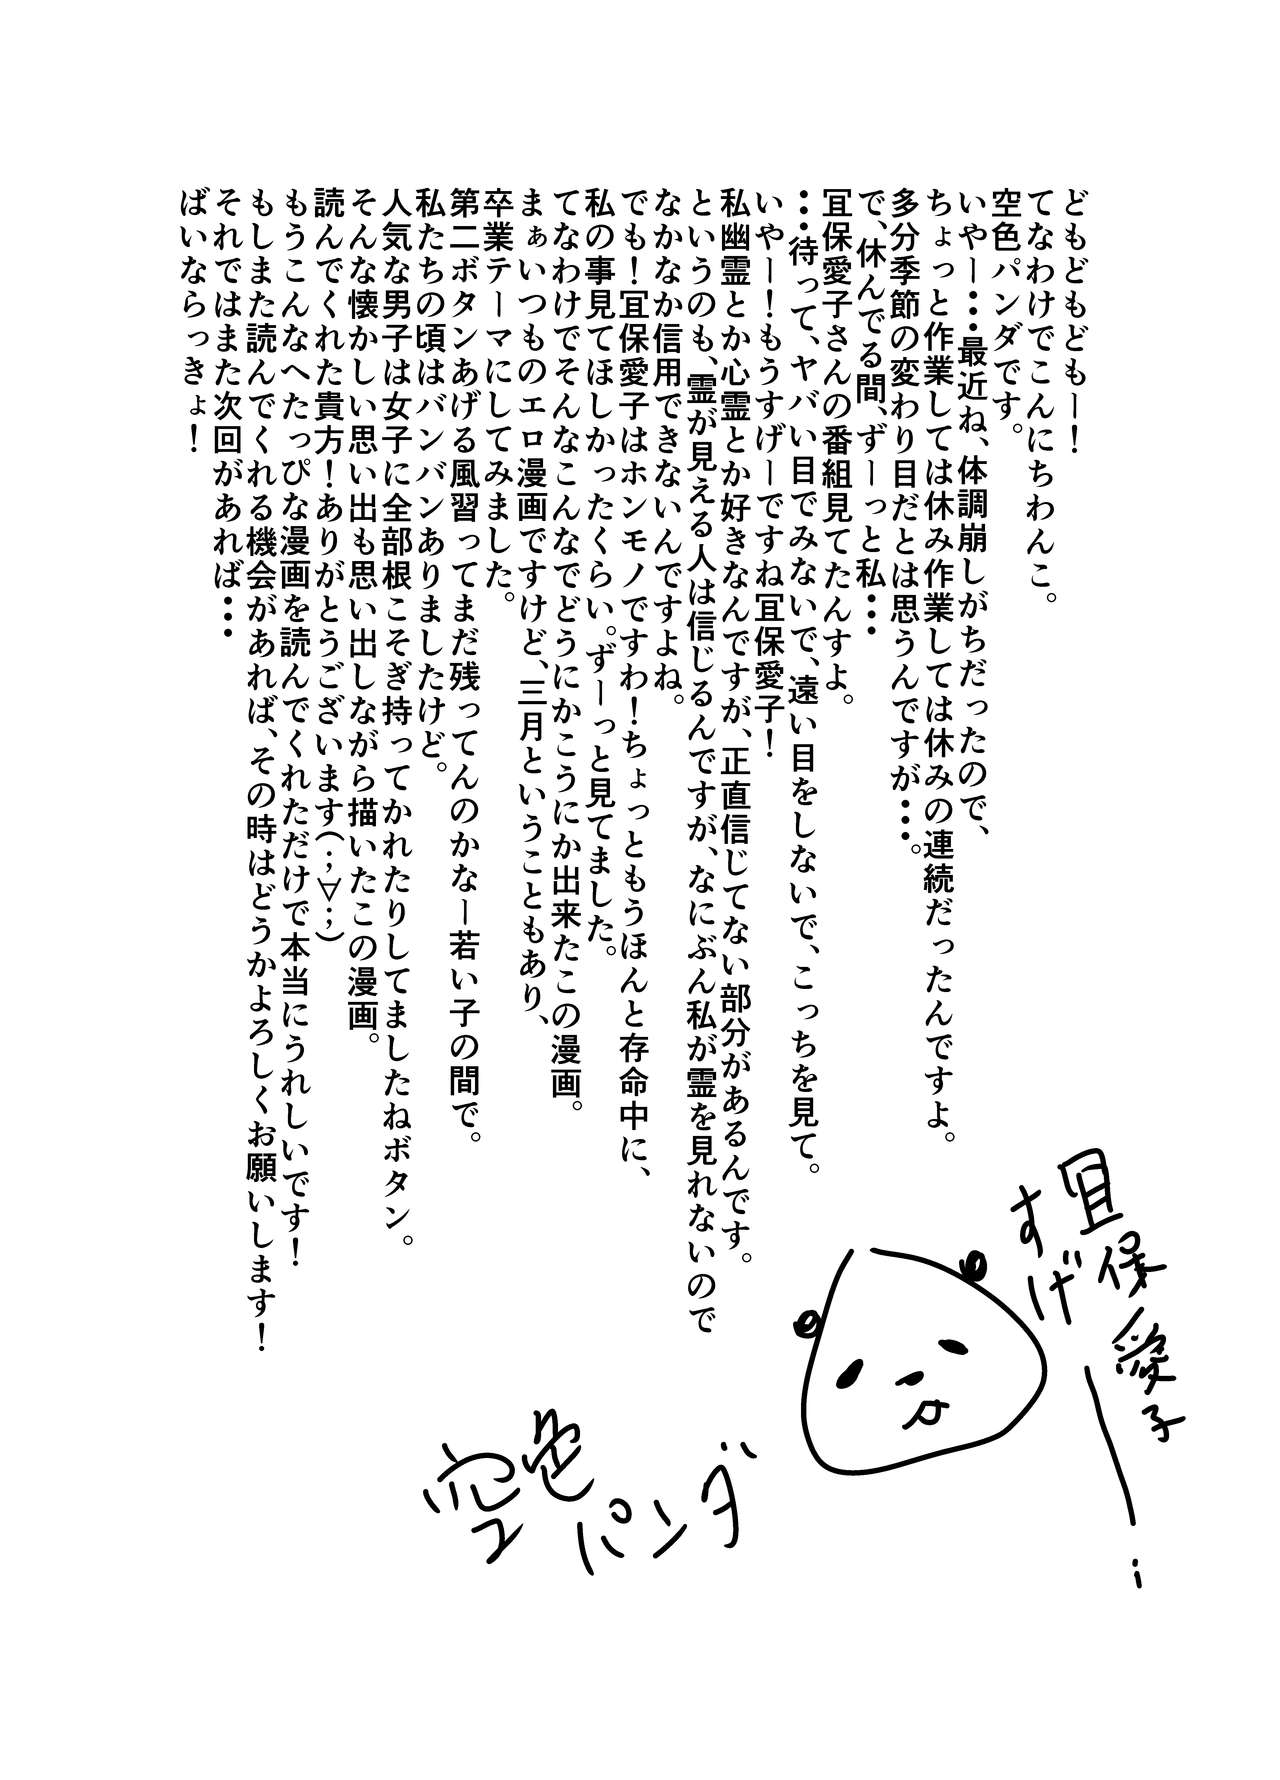 どもどもどもー！
てなわけでこんにちわんこ。
空色パンダです。
いやー…最近ね、体調崩しがちだったので、
ちょっと作業しては休み作業しては休みの連続だったんですよ。
多分季節の変わり目だとは思うんですが…。
で、休んでる間、ずーっと私…
宜保愛子さんの番組見てたんすよ。
…待って、ヤバい目でみないで、遠い目をしないで、こっちを見て。
いやー！もうすげーですね宜保愛子！
私幽霊とか心霊とか好きなんですが、正直信じてない部分があるんです。
というのも、霊が見える人は信じるんですが、なにぶん私が霊を見れないので
なかなか信用できないんですよね。
でも！宜保愛子はホンモノですわ！ちょっともうほんと存命中に、
私の事見てほしかったくらい。ずーっと見てました。
てなわけでそんなこんなでどうにかこうにか出来たこの漫画。
まぁいつものエロ漫画ですけど、三月ということもあり、
卒業テーマにしてみました。
第二ボタンあげる風習ってまだ残ってんのかなー若い子の間で。
私たちの頃はバンバンありましたけど。
人気な男子は女子に全部根こそぎ持ってかれたりしてましたねボタン。
そんな懐かしい思い出も思い出しながら描いたこの漫画。
読んでくれた貴方！ありがとうございます(；∀；)
もうこんなへたっぴな漫画を読んでくれただけで本当にうれしいです！
もしまた読んでくれる機会があれば、その時はどうかよろしくお願いします！
それではまた次回があれば…
ばいならっきょ！
宜保愛子
すげー…
空色パンダ